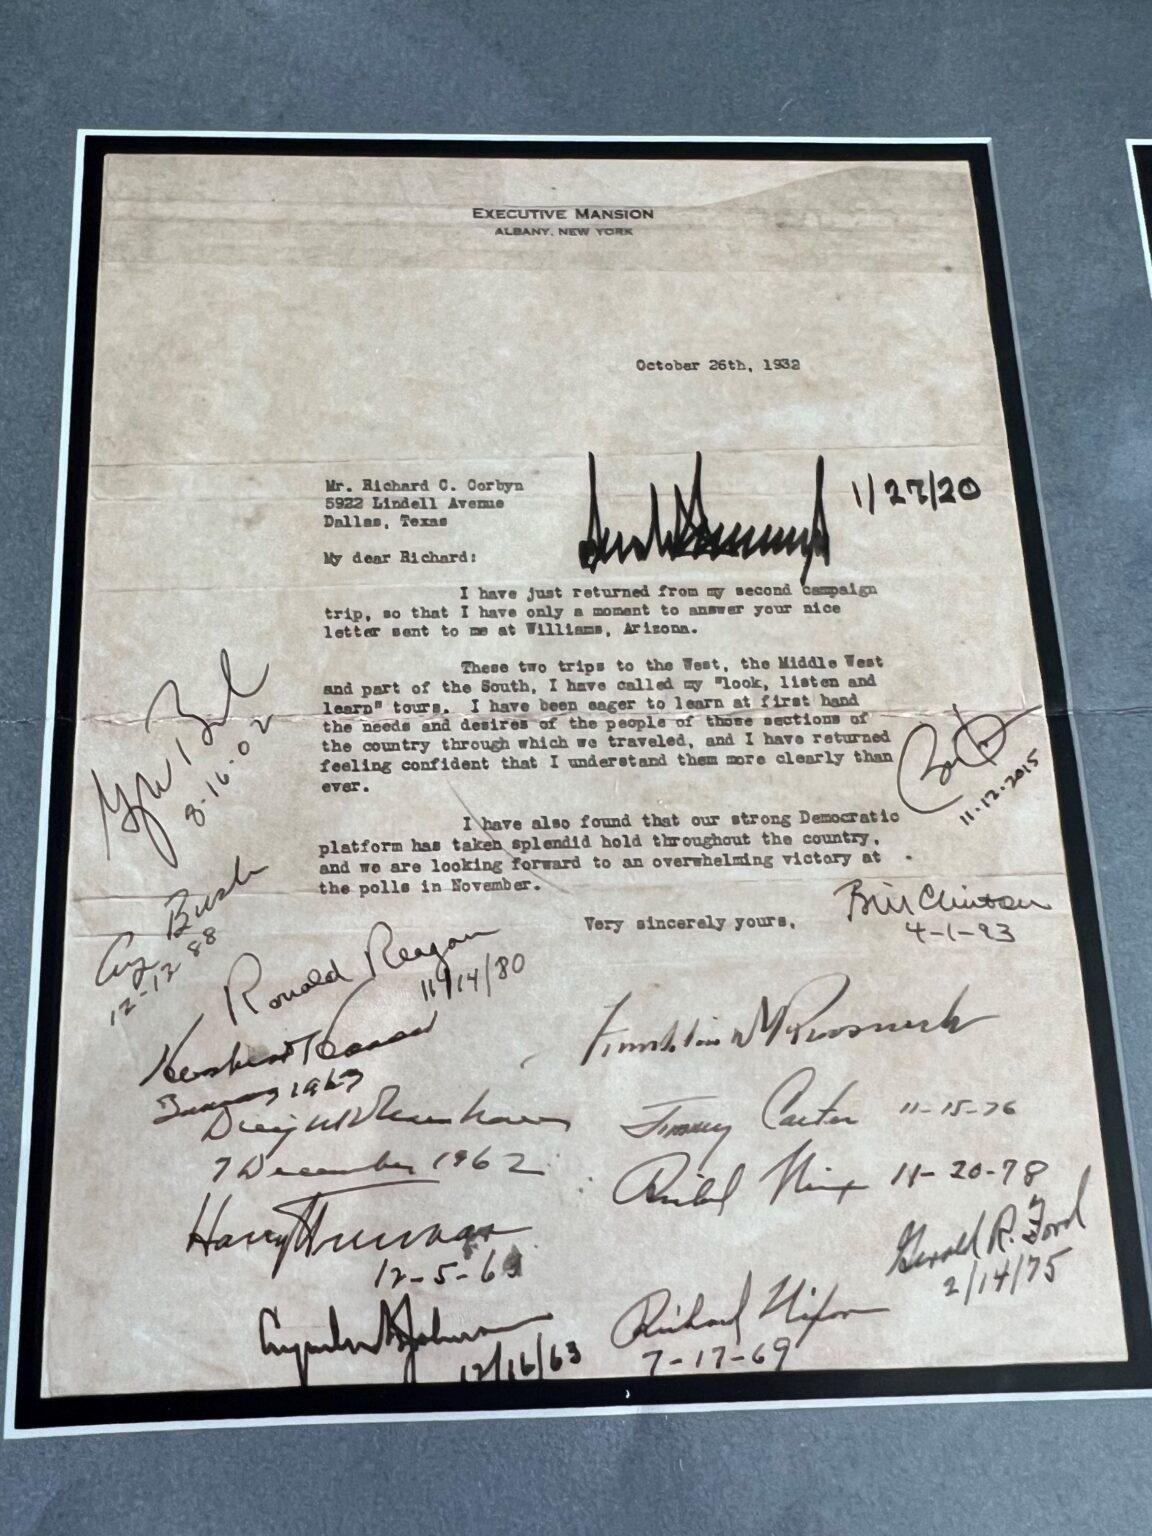 EXECUTIVE MANSION
ALBANY, NEW YORK
October 26th, 1932
Mr. Richard C. Corbyn
5922 Lindell Avenue
Dallas, Texas
1/27/20
My dear Richard:
I have just returned from my second campaign
trip, so that I have only a moment to answer your nice
letter sent to me at Williams, Arizona.
These two trips to the West, the Middle West
and part of the South, I have called my "look, listen and
learn" tours. I have been eager to learn at first hand
the needs and desires of the people of those sections of
the country through which we traveled, and I have returned
feeling confident that I understand them more clearly than
ever.
8-16-02
11-12-2015
I have also found that our strong Democratic
platform has taken splendid hold throughout the country,
and we are looking forward to an overwhelming victory at
the polls in November.
Very sincerely yours,
Bill Clinton
4-1-93
Bush
12-12-88
Ronald Reagan
11/14/80
Franklin D Roosevelt
Herbert Hoover
1963
Jimmy Carter 11-15-76
Dwight D Eisenhower
7 December 1962
Richard Nixon 11-20-78
Harry Truman
12-5-63
Gerald R. Ford
2/14/75
Lyndon B Johnson
12/16/63
Richard Nixon
7-17-69